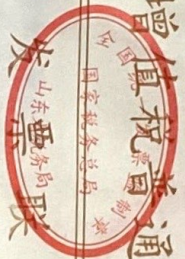 增值税普通
发票联
全国统一发票监制章
国家税务总局
山东省税务局